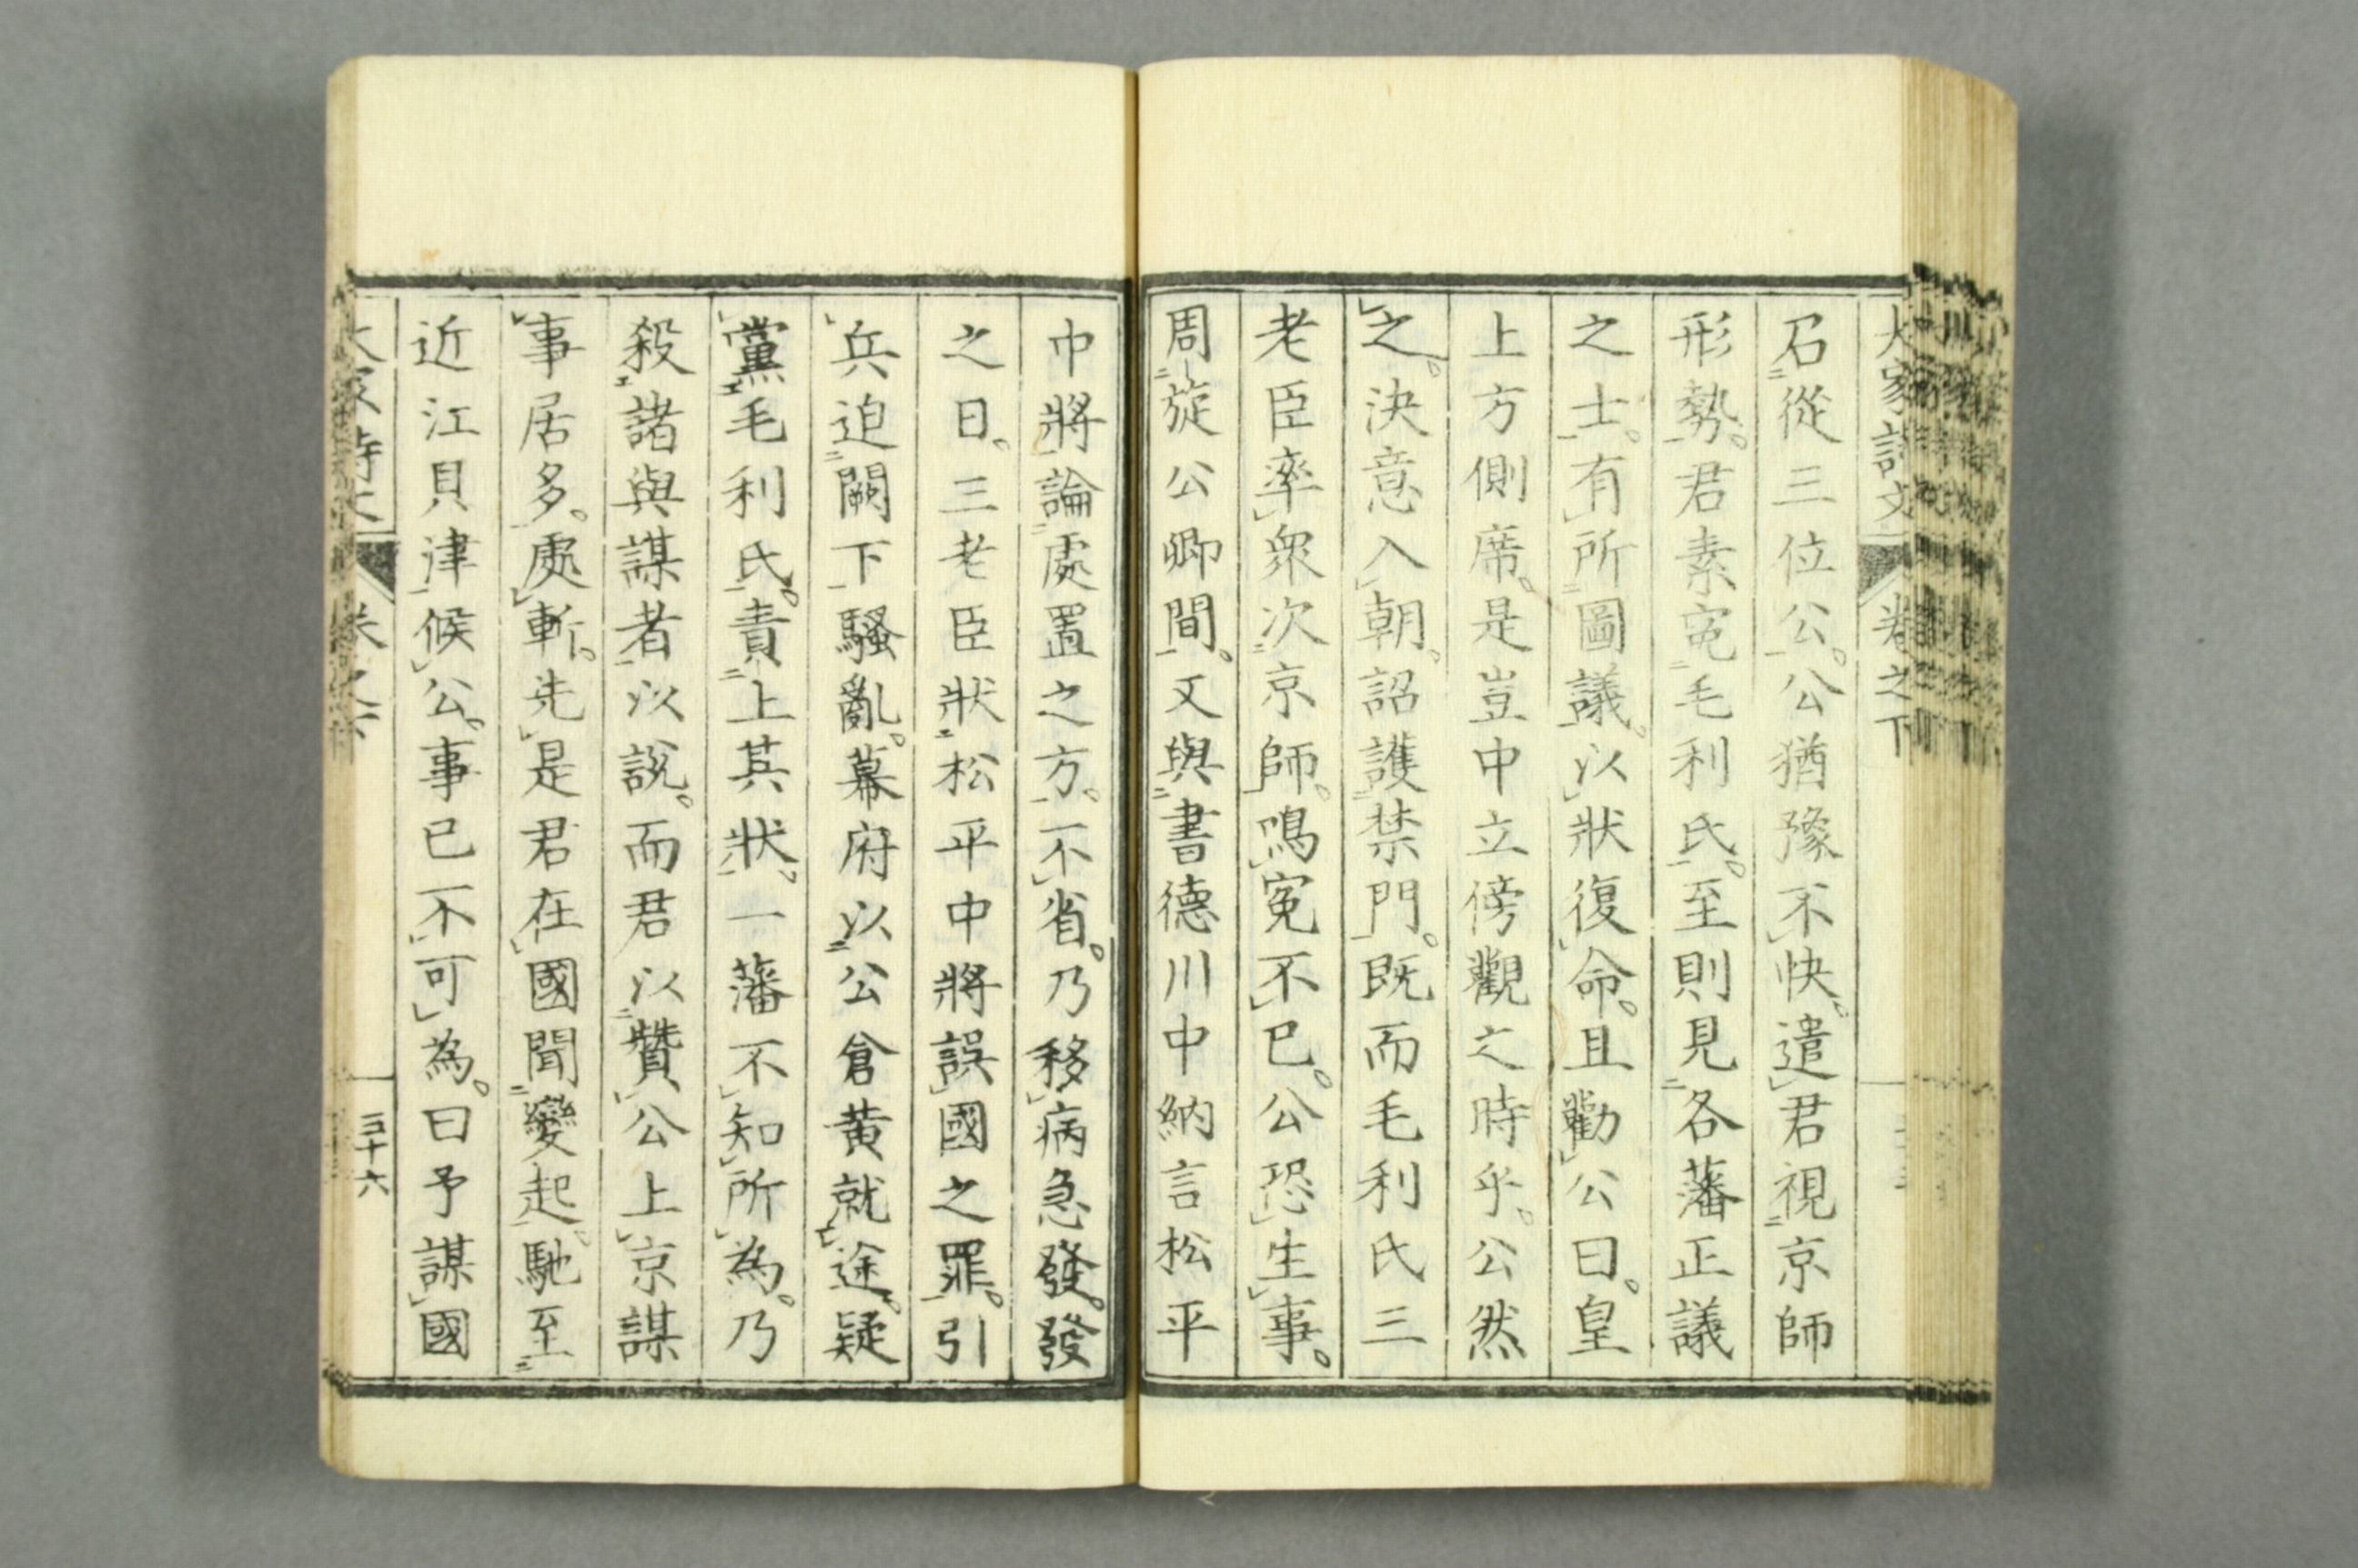 大家詩文 卷之下
召從三位公。公猶豫不快。遣君視京師
形勢。君素寃毛利氏。至則見各藩正議
之士。有所圖議。以狀復命。且勸公曰。皇
上方側席。是豈中立傍觀之時乎。公然
之。決意入朝。詔護禁門。既而毛利氏三
老臣率衆次京師。鳴寃不已。公恐生事。
周旋公卿間。又與書德川中納言松平
中將論處置之方。不省。乃移病急發。發
之日。三老臣狀松平中將誤國之罪。引
兵迫闕下騷亂。幕府以公倉黃就途。疑
黨毛利氏。責上其狀。一藩不知所為。乃
殺諸與謀者以說。而君以贊公上京謀
事居多。處斬。先是君在國聞變起。馳至
近江貝津候公。事已不可為。曰予謀國
三十六